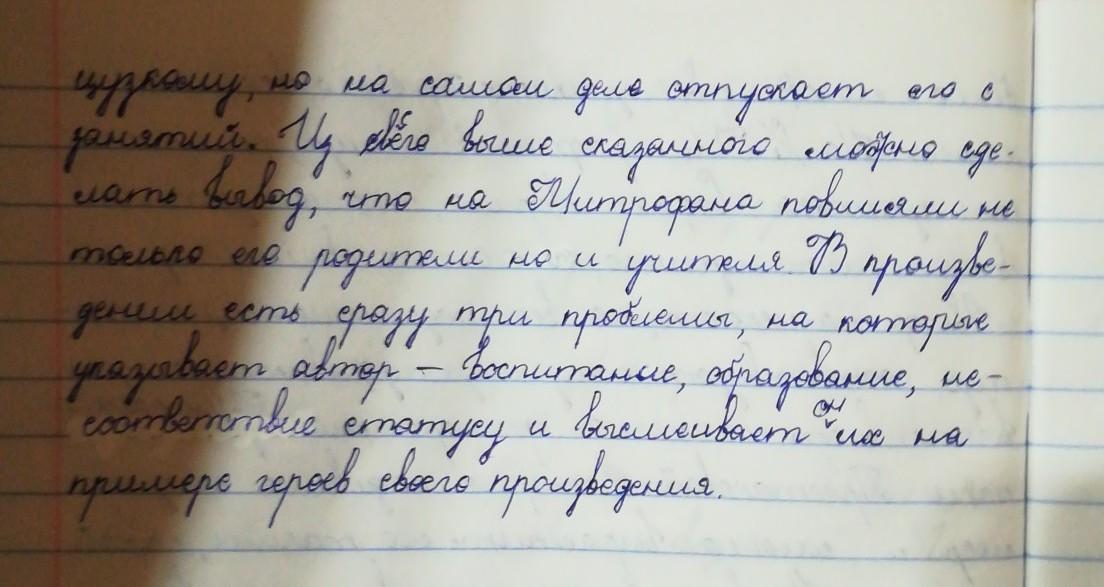 цузкому, но на самом деле отпускает его с
занятий. Из всего выше сказанного можно сде-
лать вывод, что на Митрофана повлияли не
только его родители но и учителя. В произве-
дении есть сразу три проблемы, на которые
указывает автор — воспитание, образование, не-
соответствие статусу и высмеивает он их на
примере героев своего произведения.